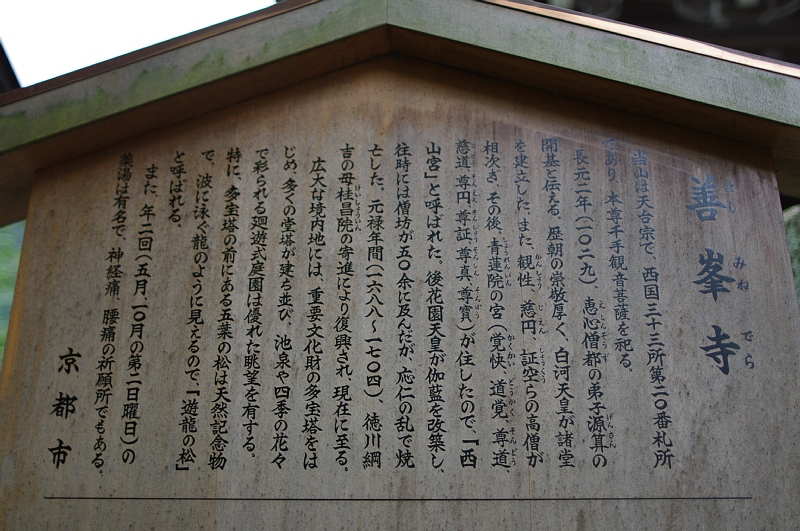 善峯寺
よしみねでら
当山は天台宗で、西国三十三所第二〇番札所
であり、本尊千手観音菩薩を祀る。
長元二年(一〇二九)、恵心僧都の弟子源算の
えしんそうず
げんさん
開基と伝える。歴朝の崇敬厚く、白河天皇が諸堂
を建立した。また、観性、慈円、証空らの高僧が
かんしょう
じえん
しょうくう
相次ぎ、その後、青蓮院の宮(覚快、道覚、尊道、
しょうれんいん
かくかい
どうかく
そんどう
慈道、尊円、尊証、尊真、尊寳)が住したので、「西
山宮」と呼ばれた。後花園天皇が伽藍を改築し、
往時には僧坊が五〇余に及んだが、応仁の乱で焼
亡した。元禄年間(一六八八〜一七〇四)、徳川綱
吉の母桂昌院の寄進により復興され、現在に至る。
けいしょういん
広大な境内地には、重要文化財の多宝塔をは
じめ、多くの堂塔が建ち並び、池泉や四季の花々
で彩られる廻遊式庭園は優れた眺望を有する。
特に、多宝塔の前にある五葉の松は天然記念物
で、波に泳ぐ龍のように見えるので、「遊龍の松」
と呼ばれる。
また、年二回(五月、一〇月の第二日曜日)の
薬湯は有名で、神経痛、腰痛の祈願所でもある。
京都市